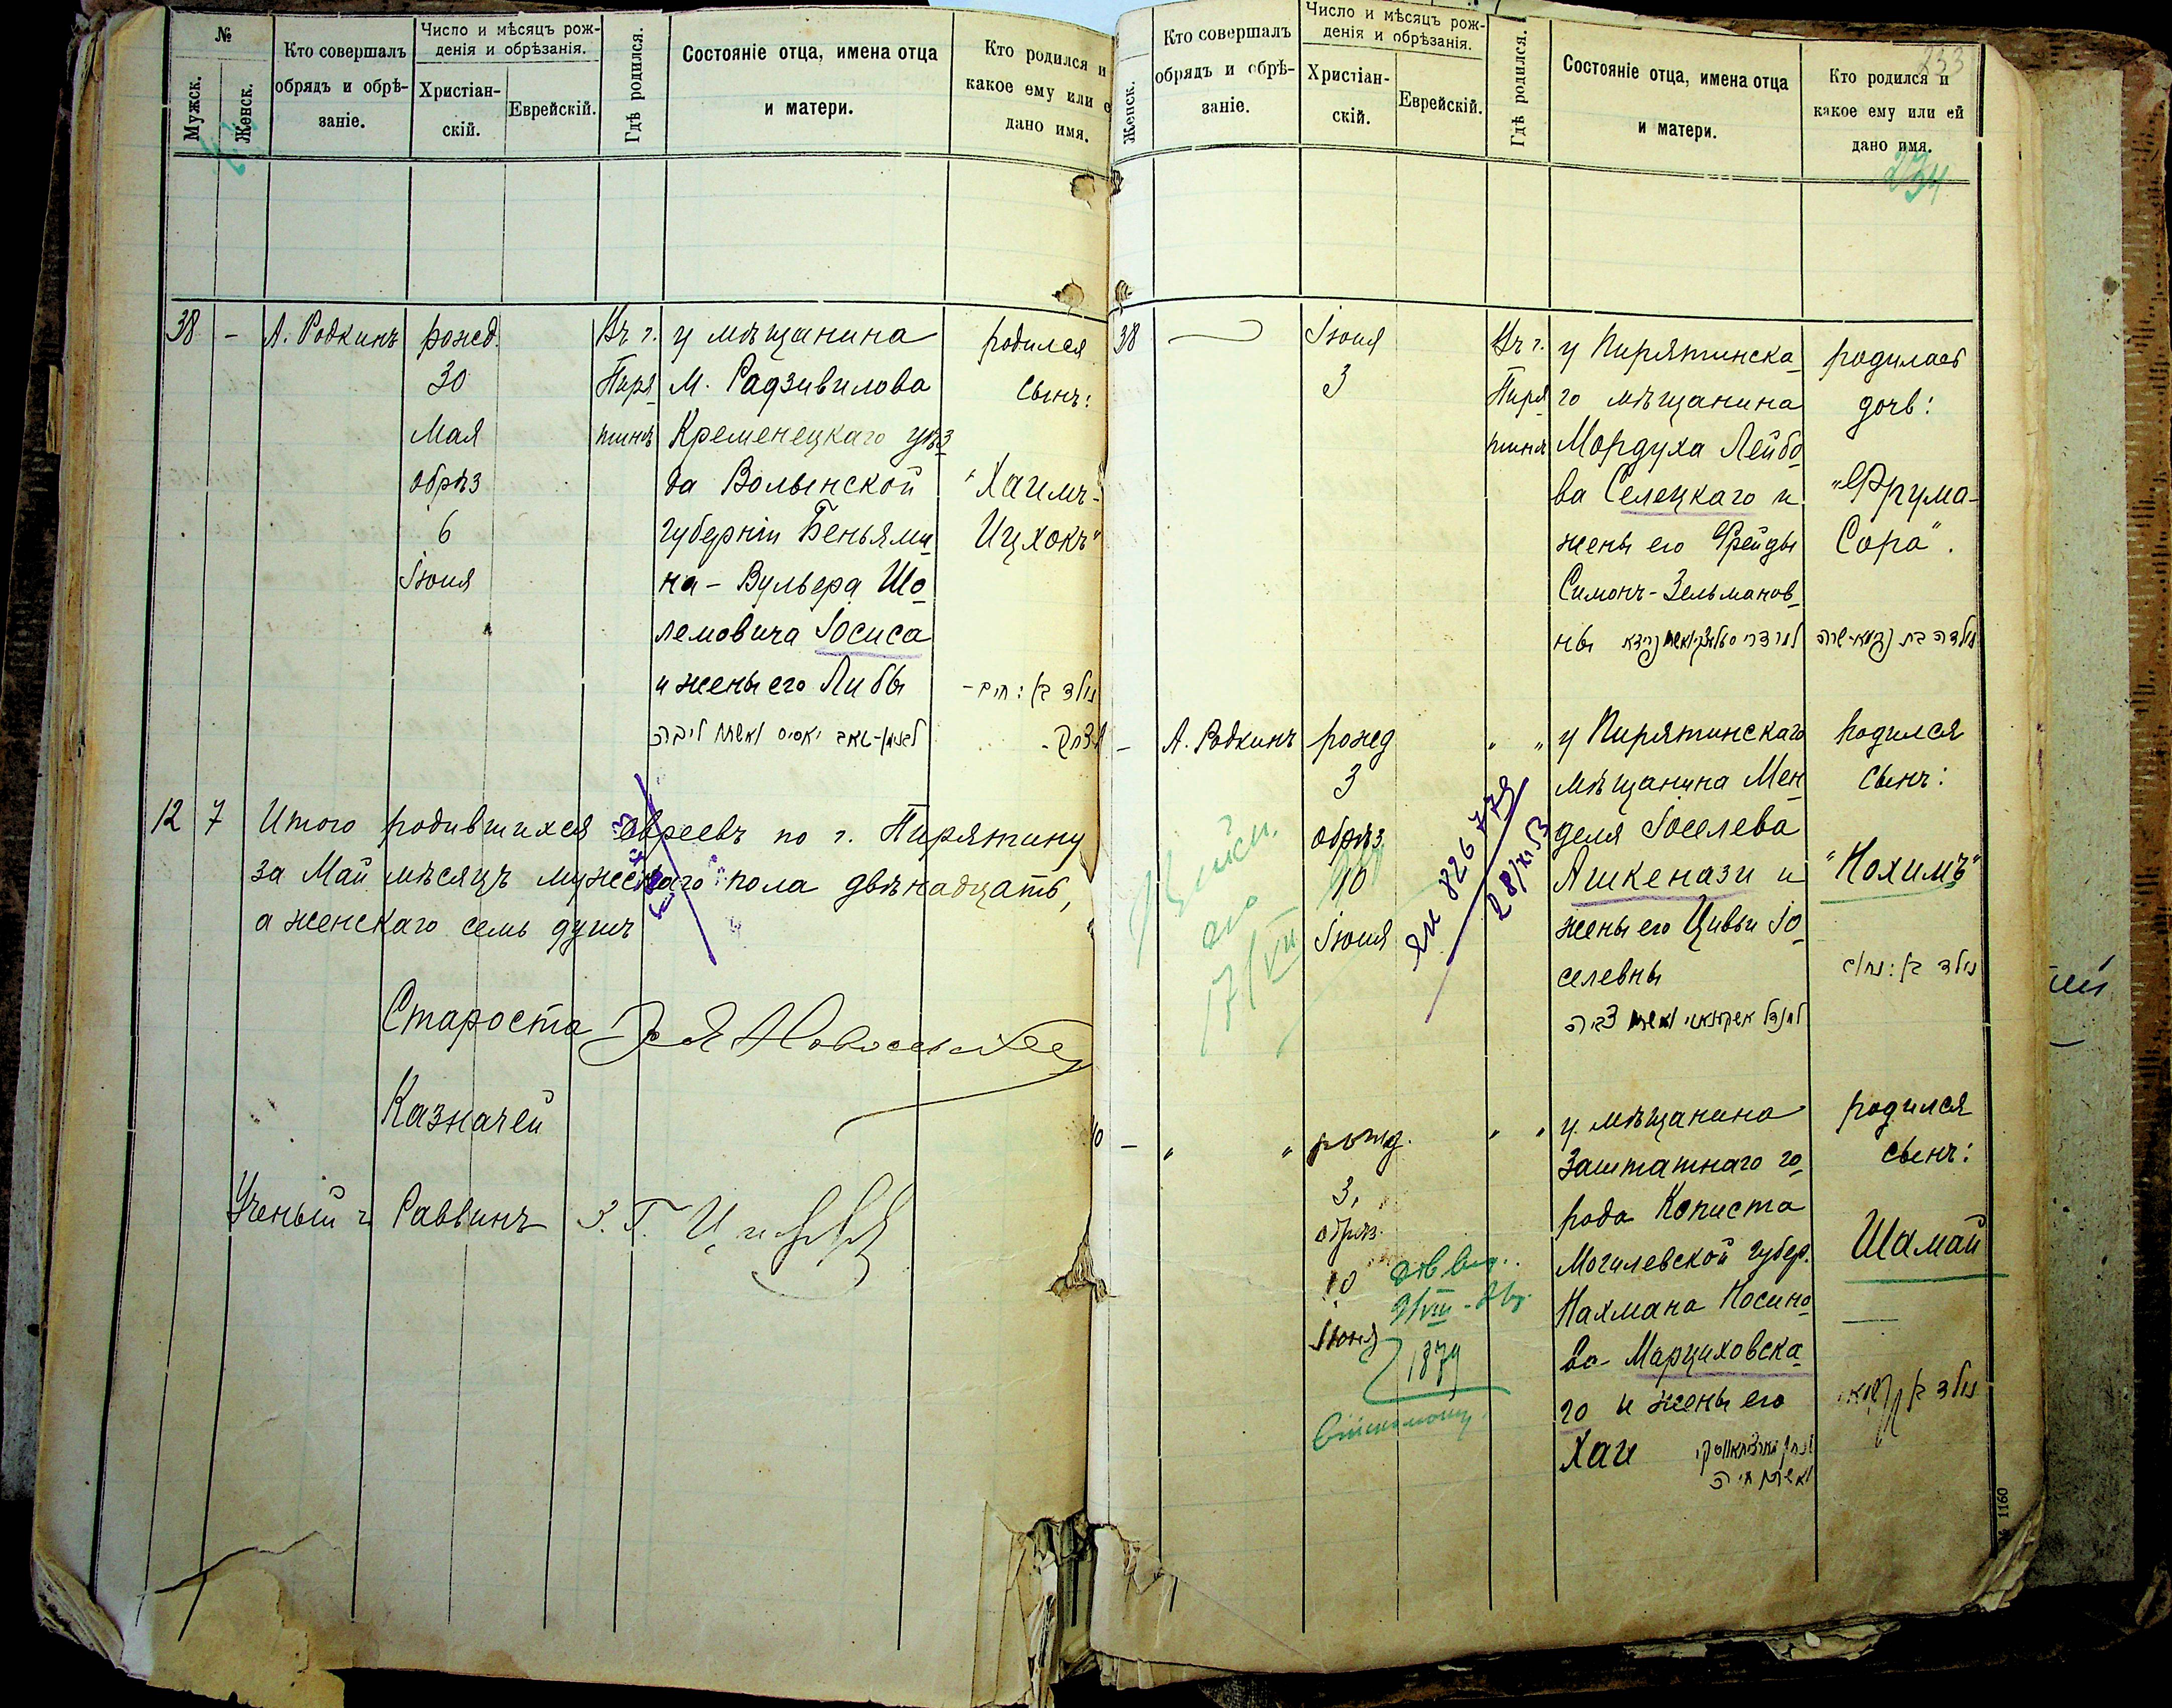 №
Мужск.
Женск.
Кто совершалъ
обрядъ и обрѣ-
заніе.
Число и мѣсяцъ рож-
денія и обрѣзанія.
Христіан-
скій.
Еврейскій.
Гдѣ родился.
Состояніе отца, имена отца
и матери.
Кто родился и
какое ему или е
дано имя.
38 - А. Родкинъ
рожд.
30
Мая
обрѣз
6
Іюня
Въ г.
Пиря
тинѣ
у мѣщанина
М. Радзивилова
Кременецкаго уѣз
да Волынской
губерніи Беньями
на - Вульфа Шо
лемовича Іосиса
и жены его Либы
родился
сынъ:
"Хаимъ-
Ицхокъ"
נולד בן: חיים-
יצחק-
12 7 Итого родившихся евреевъ по г. Пирятину
за Май мѣсяцъ мужескаго пола двѣнадцать,
а женскаго семь душъ
Староста
Казначей
Ученый Раввинъ
Женск.
Кто совершалъ
обрядъ и обрѣ-
заніе.
Число и мѣсяцъ рож-
денія и обрѣзанія.
Христіан-
скій.
Еврейскій.
Гдѣ родился.
Состояніе отца, имена отца
и матери.
Кто родился и
какое ему или ей
дано имя.
233
234
38
Іюня
3
Въ г.
Пиря
тинѣ
у Пирятинска
го мѣщанина
Мордуха Лейбо
ва Селецкаго и
жены его Фрейды
Симонъ-Зельманов
ны
родилась
дочь:
"Фрума-
Сора".
נולדה בת פרומא-שרה
- А. Родкинъ
рожд
3
обрѣз
10
Іюня
" "
у Пирятинскаго
мѣщанина Мен
деля Іоселева
Ашкенази и
жены его Цивьи Іо
селевны
родился
сынъ:
"Нохимъ"
נולד בן: נחום
17/VIII
ЯИ 826779
28/XI 53
0 - " "
рожд.
3,
обрѣз.
10
Іюня
" "
у мѣщанина
заштатнаго го
рода Копыста
Могилевской губер.
Нахмана Носино
ва Марциховска
го и жены его
Хаи
ואשתו חיה
родился
сынъ:
Шамай
נולד בן שמאי
1879
№ 1160